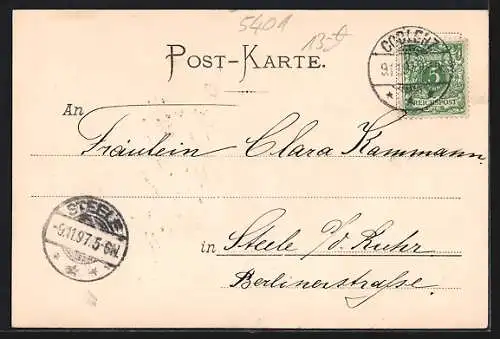 5401
POST-KARTE.
COBLENZ
5
REICHSPOST
An
Fräulein Clara Kammann.
STEELE
-9.11.97.5-6N.
in Steele a/d. Ruhr
Berlinerstraße.